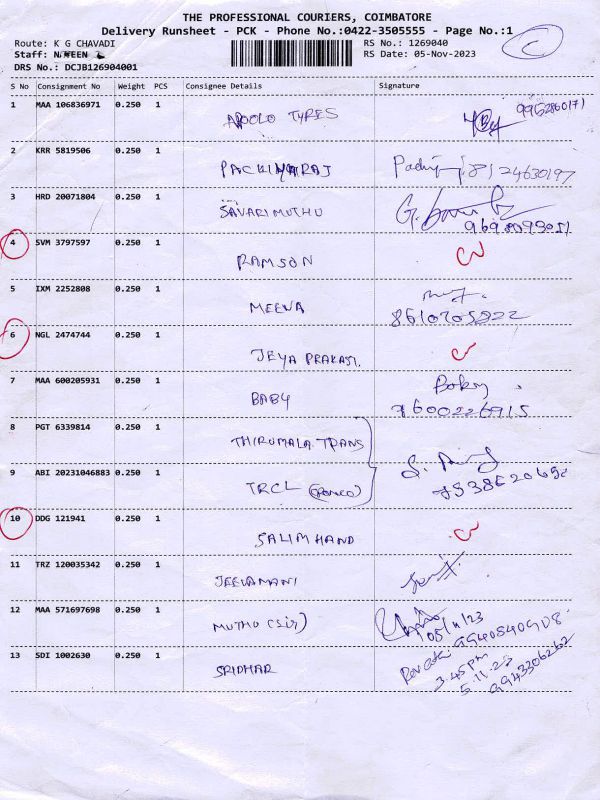 THE PROFESSIONAL COURIERS, COIMBATORE
Delivery Runsheet - PCK - Phone No.:0422-3505555 - Page No.:1
Route: K G CHAVADI RS No.: 1269040
Staff: RS Date: 05-Nov-2023
DRS No.: DCJB126904001
S No Consignment No Weight PCS Consignee Details Signature
1 MAA 106836971 0.250 1 APOLO TYRES
2 KRR 5819506 0.250 1 PACKIYARAJ 8124630197
3 HRD 20071804 0.250 1 SAVARIMUTHU
9698099051
4 SVM 3797597 0.250 1 RAMSON
5 IXM 2252808 0.250 1 MEENA
8610705822
6 NGL 2474744 0.250 1 JEYA PRAKASH
7 MAA 600205931 0.250 1 BABY
7600226915
8 PGT 6339814 0.250 1 THIRUMALA TRANS
9 ABI 20231046883 0.250 1 TRCL
10 DDG 121941 0.250 1 SALIM HAND
11 TRZ 120035342 0.250 1 JEEVAMANI
12 MAA 571697698 0.250 1 MUTHU (SIR)
05/11/23
9940540908
13 SDI 1002630 0.250 1 SRIDHAR Revathi
3.45 PM
5.11.23